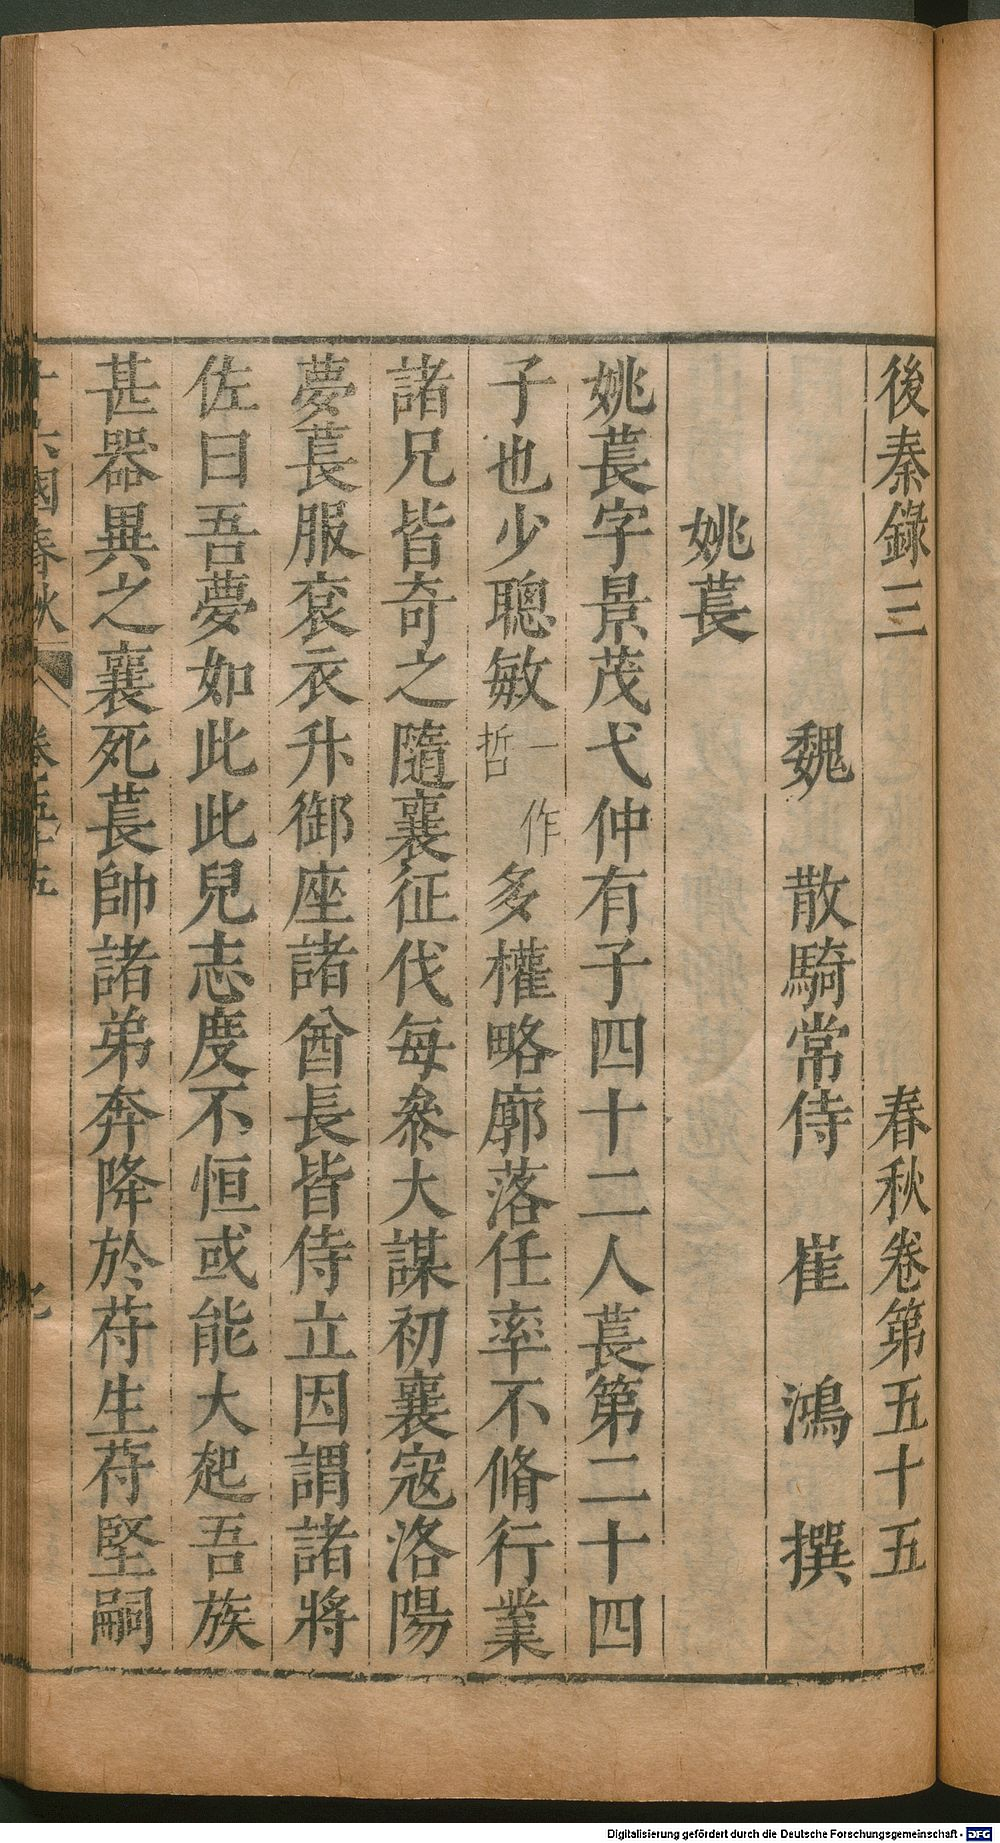 後秦錄三　春秋卷第五十五
魏　散騎常侍　崔　鴻　撰
姚萇
姚萇字景茂弋仲有子四十二人萇第二十四
子也少聰敏一作哲多權略廓落任率不脩行業
諸兄皆奇之隨襄征伐每叅大謀初襄寇洛陽
夢萇服衮衣升御座諸酋長皆侍立因謂諸將
佐曰吾夢如此此兒志度不恒或能大起吾族
甚器異之襄死萇帥諸弟奔降於苻生苻堅嗣
十六國春秋　卷五十五
Digitalisierung gefördert durch die Deutsche Forschungsgemeinschaft - DFG